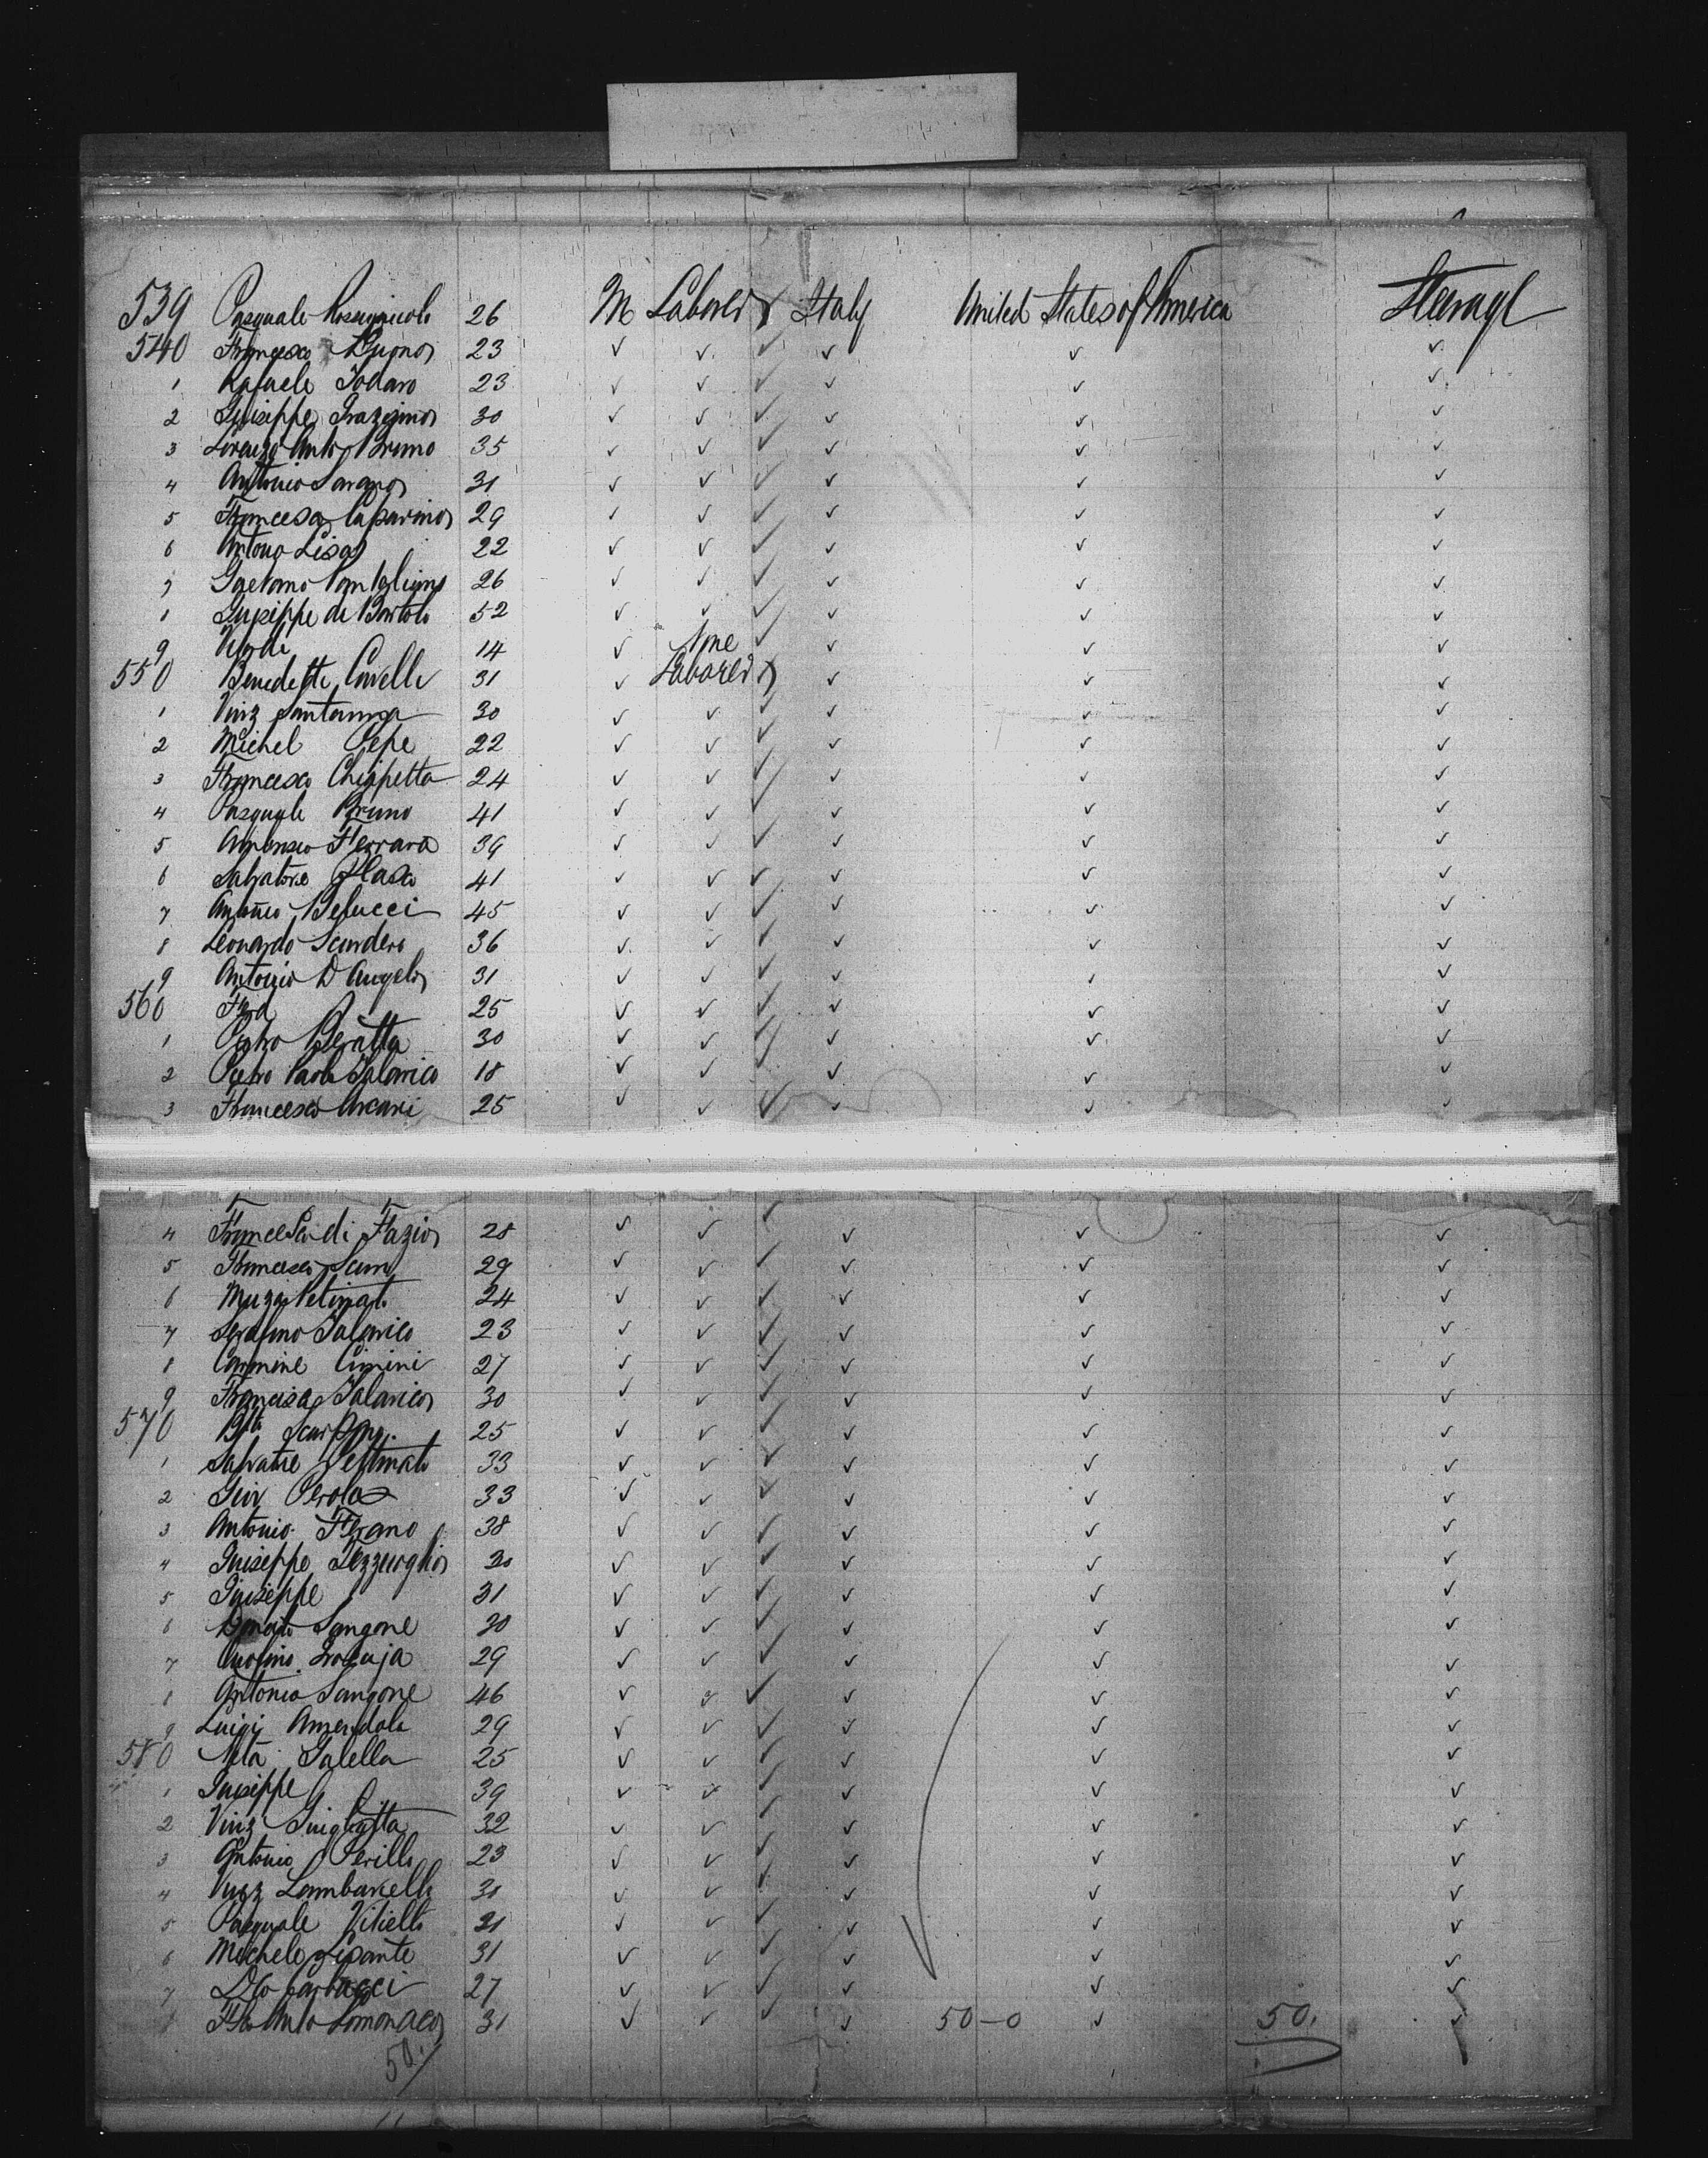 539 Pasquale 26 M Laborer Italy United States of America Steerage
540 Francesco Buono 23 ✓ ✓ ✓ ✓ ✓
1 Rafaele Todaro 23 ✓ ✓ ✓ ✓ ✓
2 Guiseppe Graziano 30 ✓ ✓ ✓ ✓ ✓
3 Lorenzo Anto Bruno 35 ✓ ✓ ✓ ✓ ✓
4 Antonio 31 ✓ ✓ ✓ ✓ ✓
5 Francesco 29 ✓ ✓ ✓ ✓ ✓
6 Antono Lisa 22 ✓ ✓ ✓ ✓ ✓
7 Gaetano 26 ✓ ✓ ✓ ✓ ✓
8 Guseppe de Bartolo 52 ✓ ✓ ✓ ✓ ✓
9 14 ✓ None ✓ ✓ ✓
550 Benedetto Covelle 31 ✓ Laborer ✓ ✓ ✓
1 Vinz Santanna 30 ✓ ✓ ✓ ✓ ✓
2 Michel Pepe 22 ✓ ✓ ✓ ✓ ✓
3 Francesco Chiappetta 24 ✓ ✓ ✓ ✓ ✓
4 Pasquale Bruno 41 ✓ ✓ ✓ ✓ ✓
5 Alfonso Ferrara 39 ✓ ✓ ✓ ✓ ✓
6 Salvatore 41 ✓ ✓ ✓ ✓ ✓
7 Antonio Belucci 45 ✓ ✓ ✓ ✓ ✓
8 Leonardo Scardero 36 ✓ ✓ ✓ ✓ ✓
9 Antonio D Angelo 31 ✓ ✓ ✓ ✓ ✓
560 25 ✓ ✓ ✓ ✓ ✓
1 Pietro Beratta 30 ✓ ✓ ✓ ✓ ✓
2 Pietro Paolo Talarico 18 ✓ ✓ ✓ ✓ ✓
3 Francesco Arcari 25 ✓ ✓ ✓ ✓ ✓
4 Francesco di Fazio 28 ✓ ✓ ✓ ✓ ✓
5 Francesco 29 ✓ ✓ ✓ ✓ ✓
6 24 ✓ ✓ ✓ ✓ ✓
7 Serafino Talarico 23 ✓ ✓ ✓ ✓ ✓
8 Carmine Cimini 27 ✓ ✓ ✓ ✓ ✓
9 Francisca Talarico 30 ✓ ✓ ✓ ✓ ✓
570 25 ✓ ✓ ✓ ✓ ✓
1 Salvatore Pettinato 33 ✓ ✓ ✓ ✓ ✓
2 Giov Perola 33 ✓ ✓ ✓ ✓ ✓
3 Antonio 38 ✓ ✓ ✓ ✓ ✓
4 Guiseppe 30 ✓ ✓ ✓ ✓ ✓
5 Guiseppe 31 ✓ ✓ ✓ ✓ ✓
6 Donato Sangone 30 ✓ ✓ ✓ ✓ ✓
7 29 ✓ ✓ ✓ ✓ ✓
8 Antonio Sangone 46 ✓ ✓ ✓ ✓ ✓
9 Luigi Amendola 29 ✓ ✓ ✓ ✓ ✓
580 Galella 25 ✓ ✓ ✓ ✓ ✓
1 Guiseppe 39 ✓ ✓ ✓ ✓ ✓
2 Vinz 32 ✓ ✓ ✓ ✓ ✓
3 Antonio Perillo 23 ✓ ✓ ✓ ✓ ✓
4 Lambarelli 30 ✓ ✓ ✓ ✓ ✓
5 Pasquale Vitiello 21 ✓ ✓ ✓ ✓ ✓
6 Michele Lisante 31 ✓ ✓ ✓ ✓ ✓
7 27 ✓ ✓ ✓ ✓ ✓
Lomonaco 31 ✓ ✓ ✓ 50-0 ✓ 50. ✓
50.